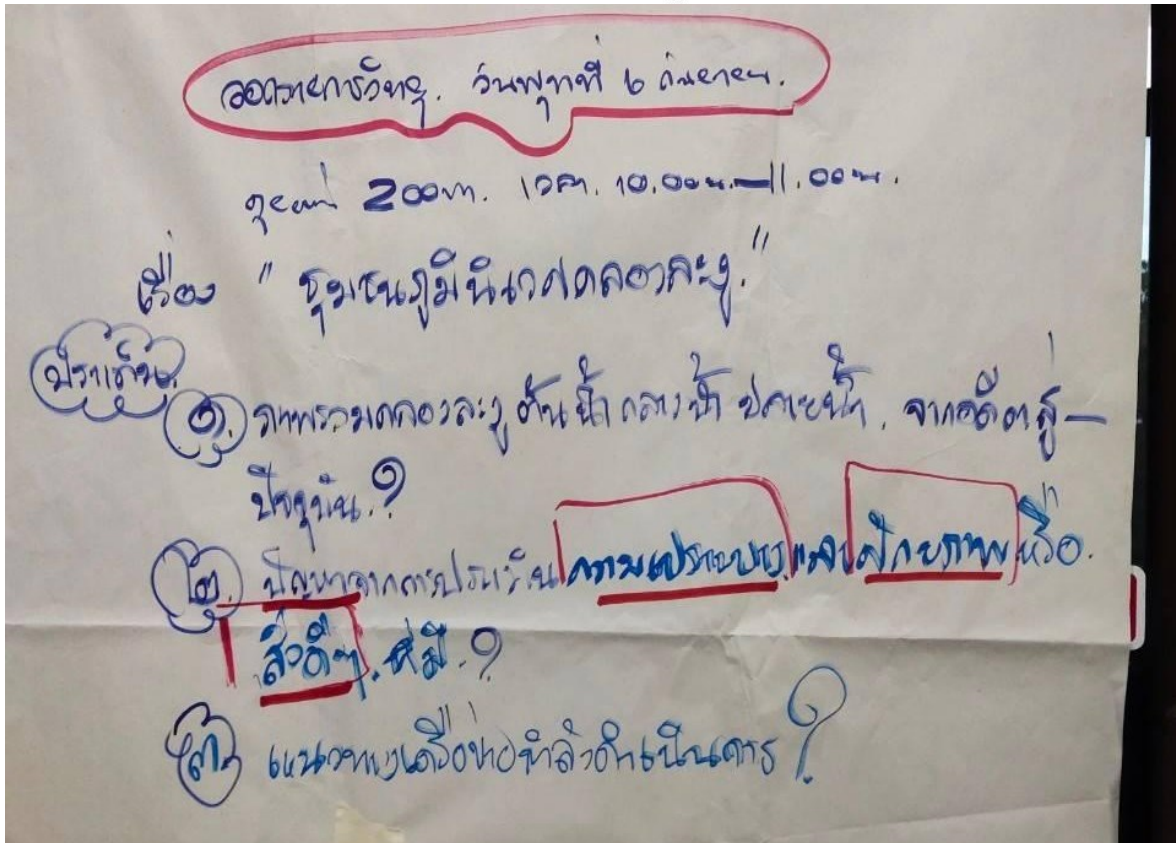 จอดรายการวิทยุ. วันพุทที่ ๖ กันยายน.
200 เวลา. 10.00น.—11.00น.
เรื่อง " ชุมชนภูมินิเวศคลองละงู."
ประเด็น.
๑. ภาพรวมคลองละงู ต้นน้ำ กลางน้ำ ปลายน้ำ. จากอดีตสู่—
ปัจจุบัน.?
๒. ปัญหาจากการประเมินความเปราะบาง และศักยภาพ หรือ.
สิ่งดีๆ. ที่มี.?
๓ แนวทางเครือข่ายกำลังดำเนินการ?